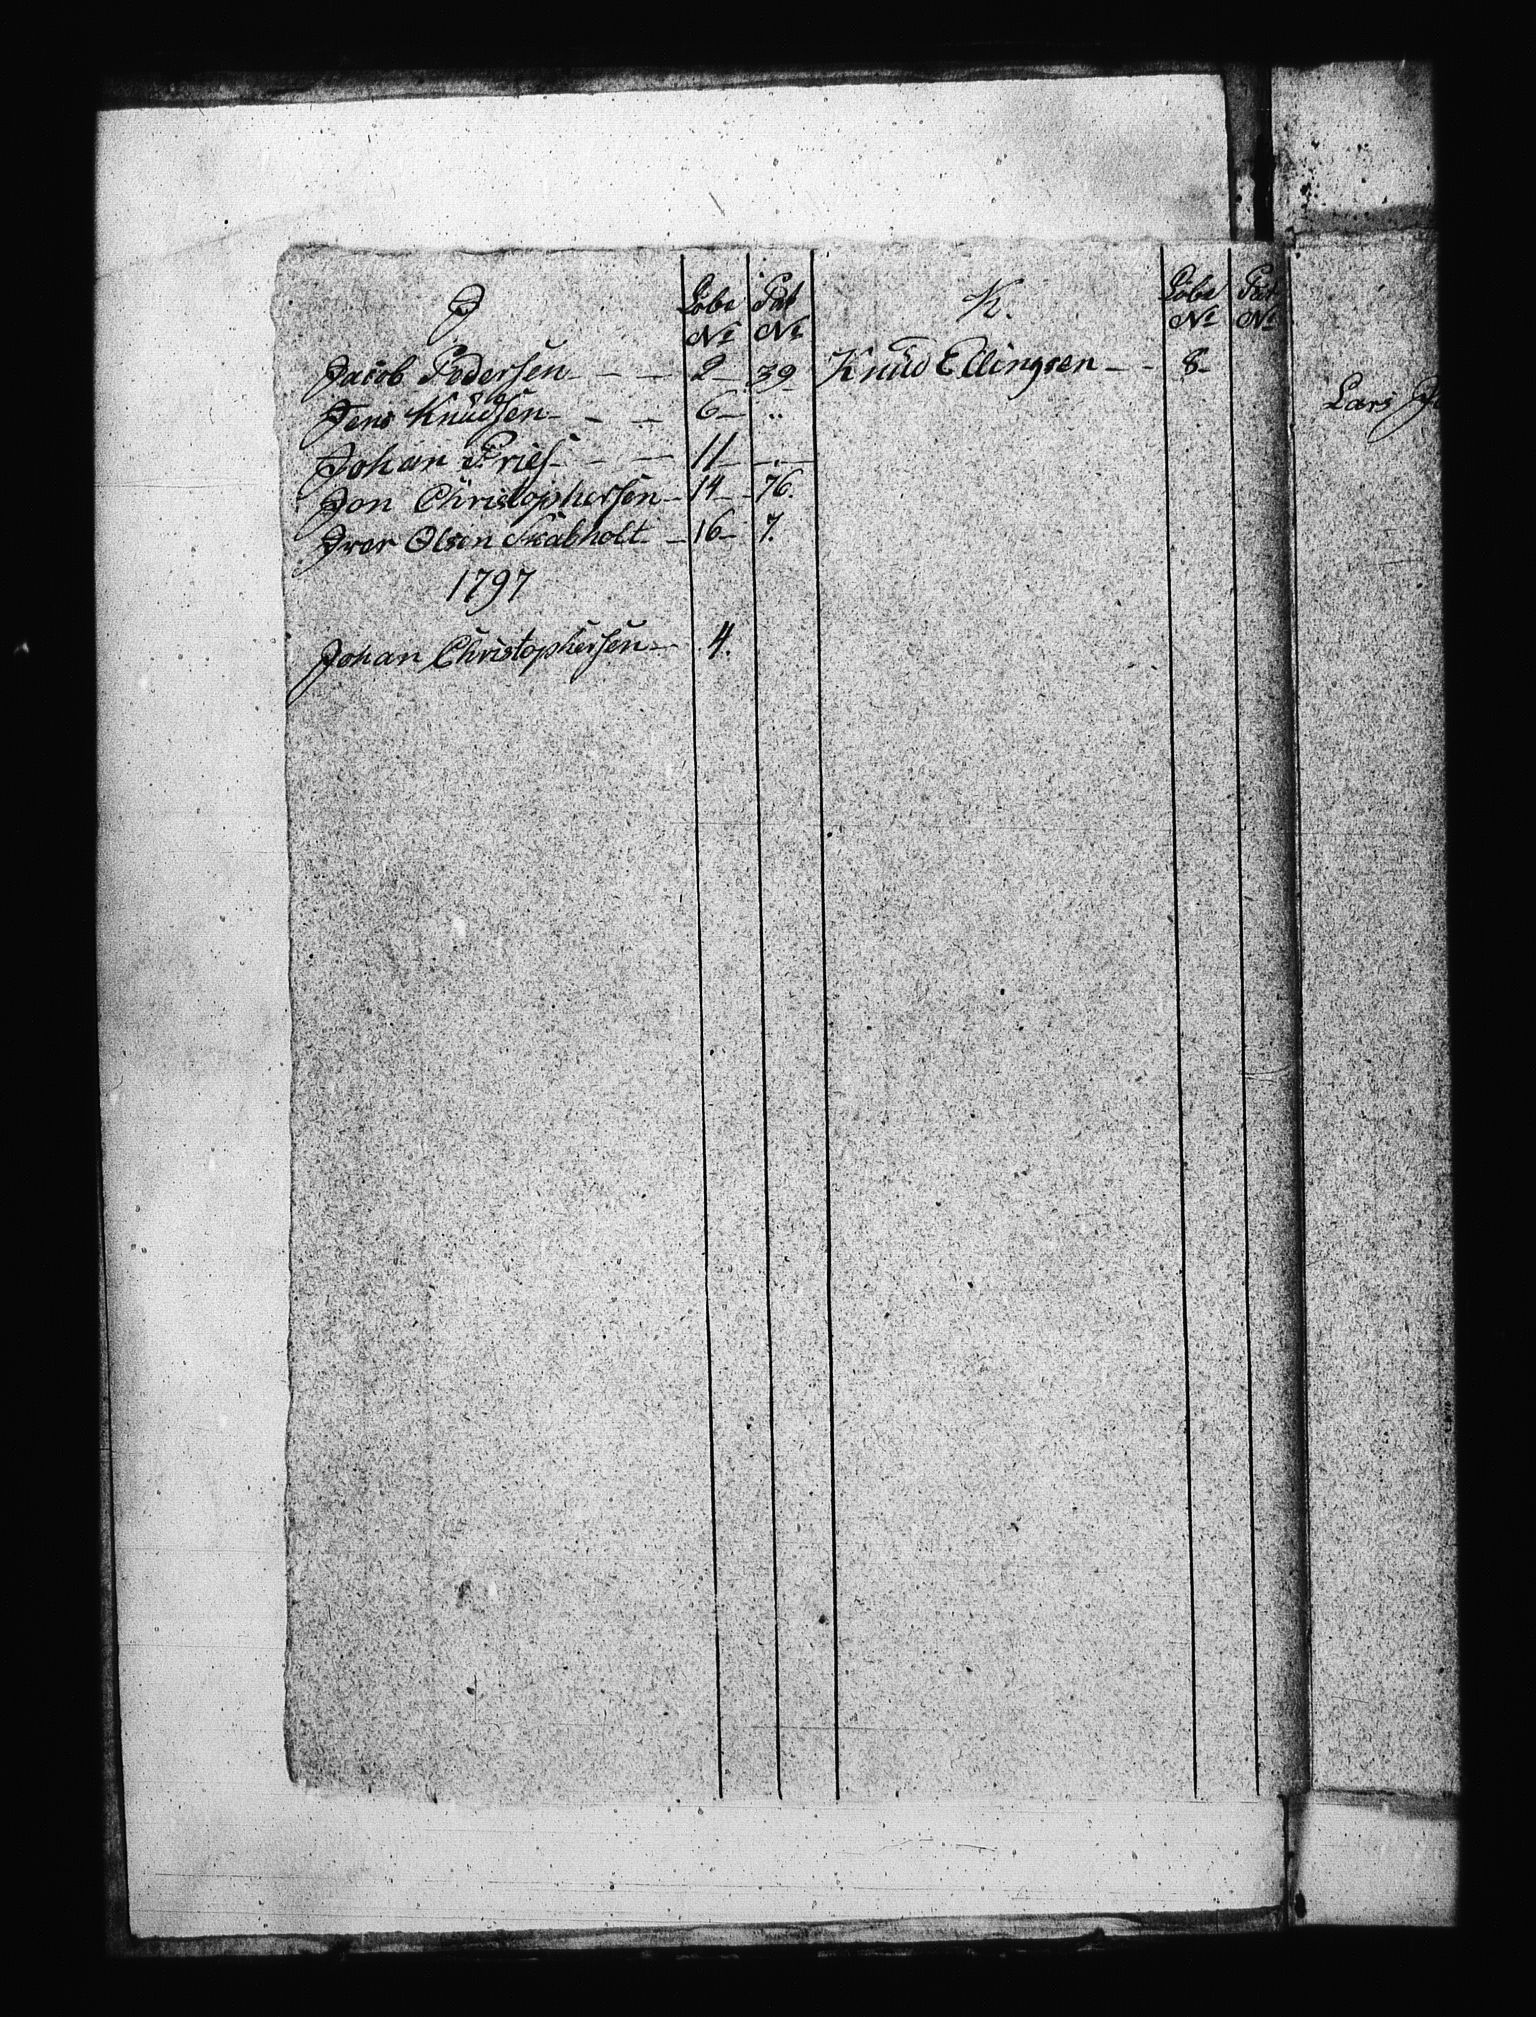 J
Løbe Pat
No No
Jacob Pedersen - - - 2 - 39
Jens Knudsen - - - 6 - ..
Johan Fries - - - 11 - . -
Jon Christophersen - 14 - 76.
Iver Olsen Skabholt - 16 - 7.
1797
Johan Christophersen - 4.
K.
Løbe Pat
No No
Knud Ellingsen - - 8 -
Lars